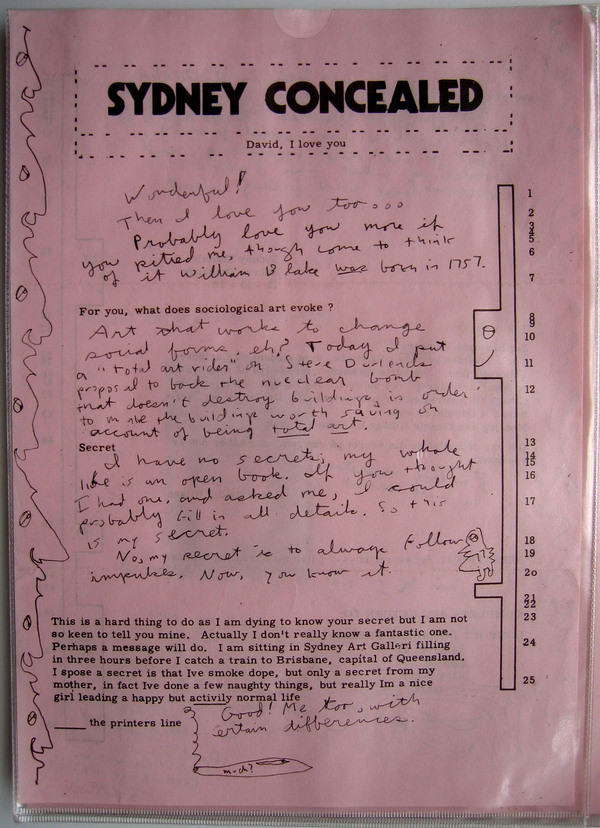 SYDNEY CONCEALED
David, I love you
Wonderful!
Then I love you too ooo
Probably love you more if
you pitied me, though come to think
of it William Blake was born in 1757.
For you, what does sociological art evoke ?
Art that works to change
social forms, eh? Today I put
a "total art rider" on Steve Durlands
proposal to back the nuclear bomb
that doesn't destroy buildings, in order
to make the buildings worth saving on
account of being total art.
Secret
I have no secrets; my whole
life is an open book. If you thought
I had one, and asked me, I could
probably fill in all details. So this
is my secret.
No, my secret is to always follow
impulses. Now, you know it.
This is a hard thing to do as I am dying to know your secret but I am not
so keen to tell you mine. Actually I don't really know a fantastic one.
Perhaps a message will do. I am sitting in Sydney Art Galleri filling
in three hours before I catch a train to Brisbane, capital of Queensland.
I spose a secret is that Ive smoke dope, but only a secret from my
mother, in fact Ive done a few naughty things, but really Im a nice
girl leading a happy but activily normal life
Good! Me too, with
certain differences.
the printers line
much?
1
2
3
4
5
6
7
8
9
10
11
12
13
14
15
16
17
18
19
20
21
22
23
24
25